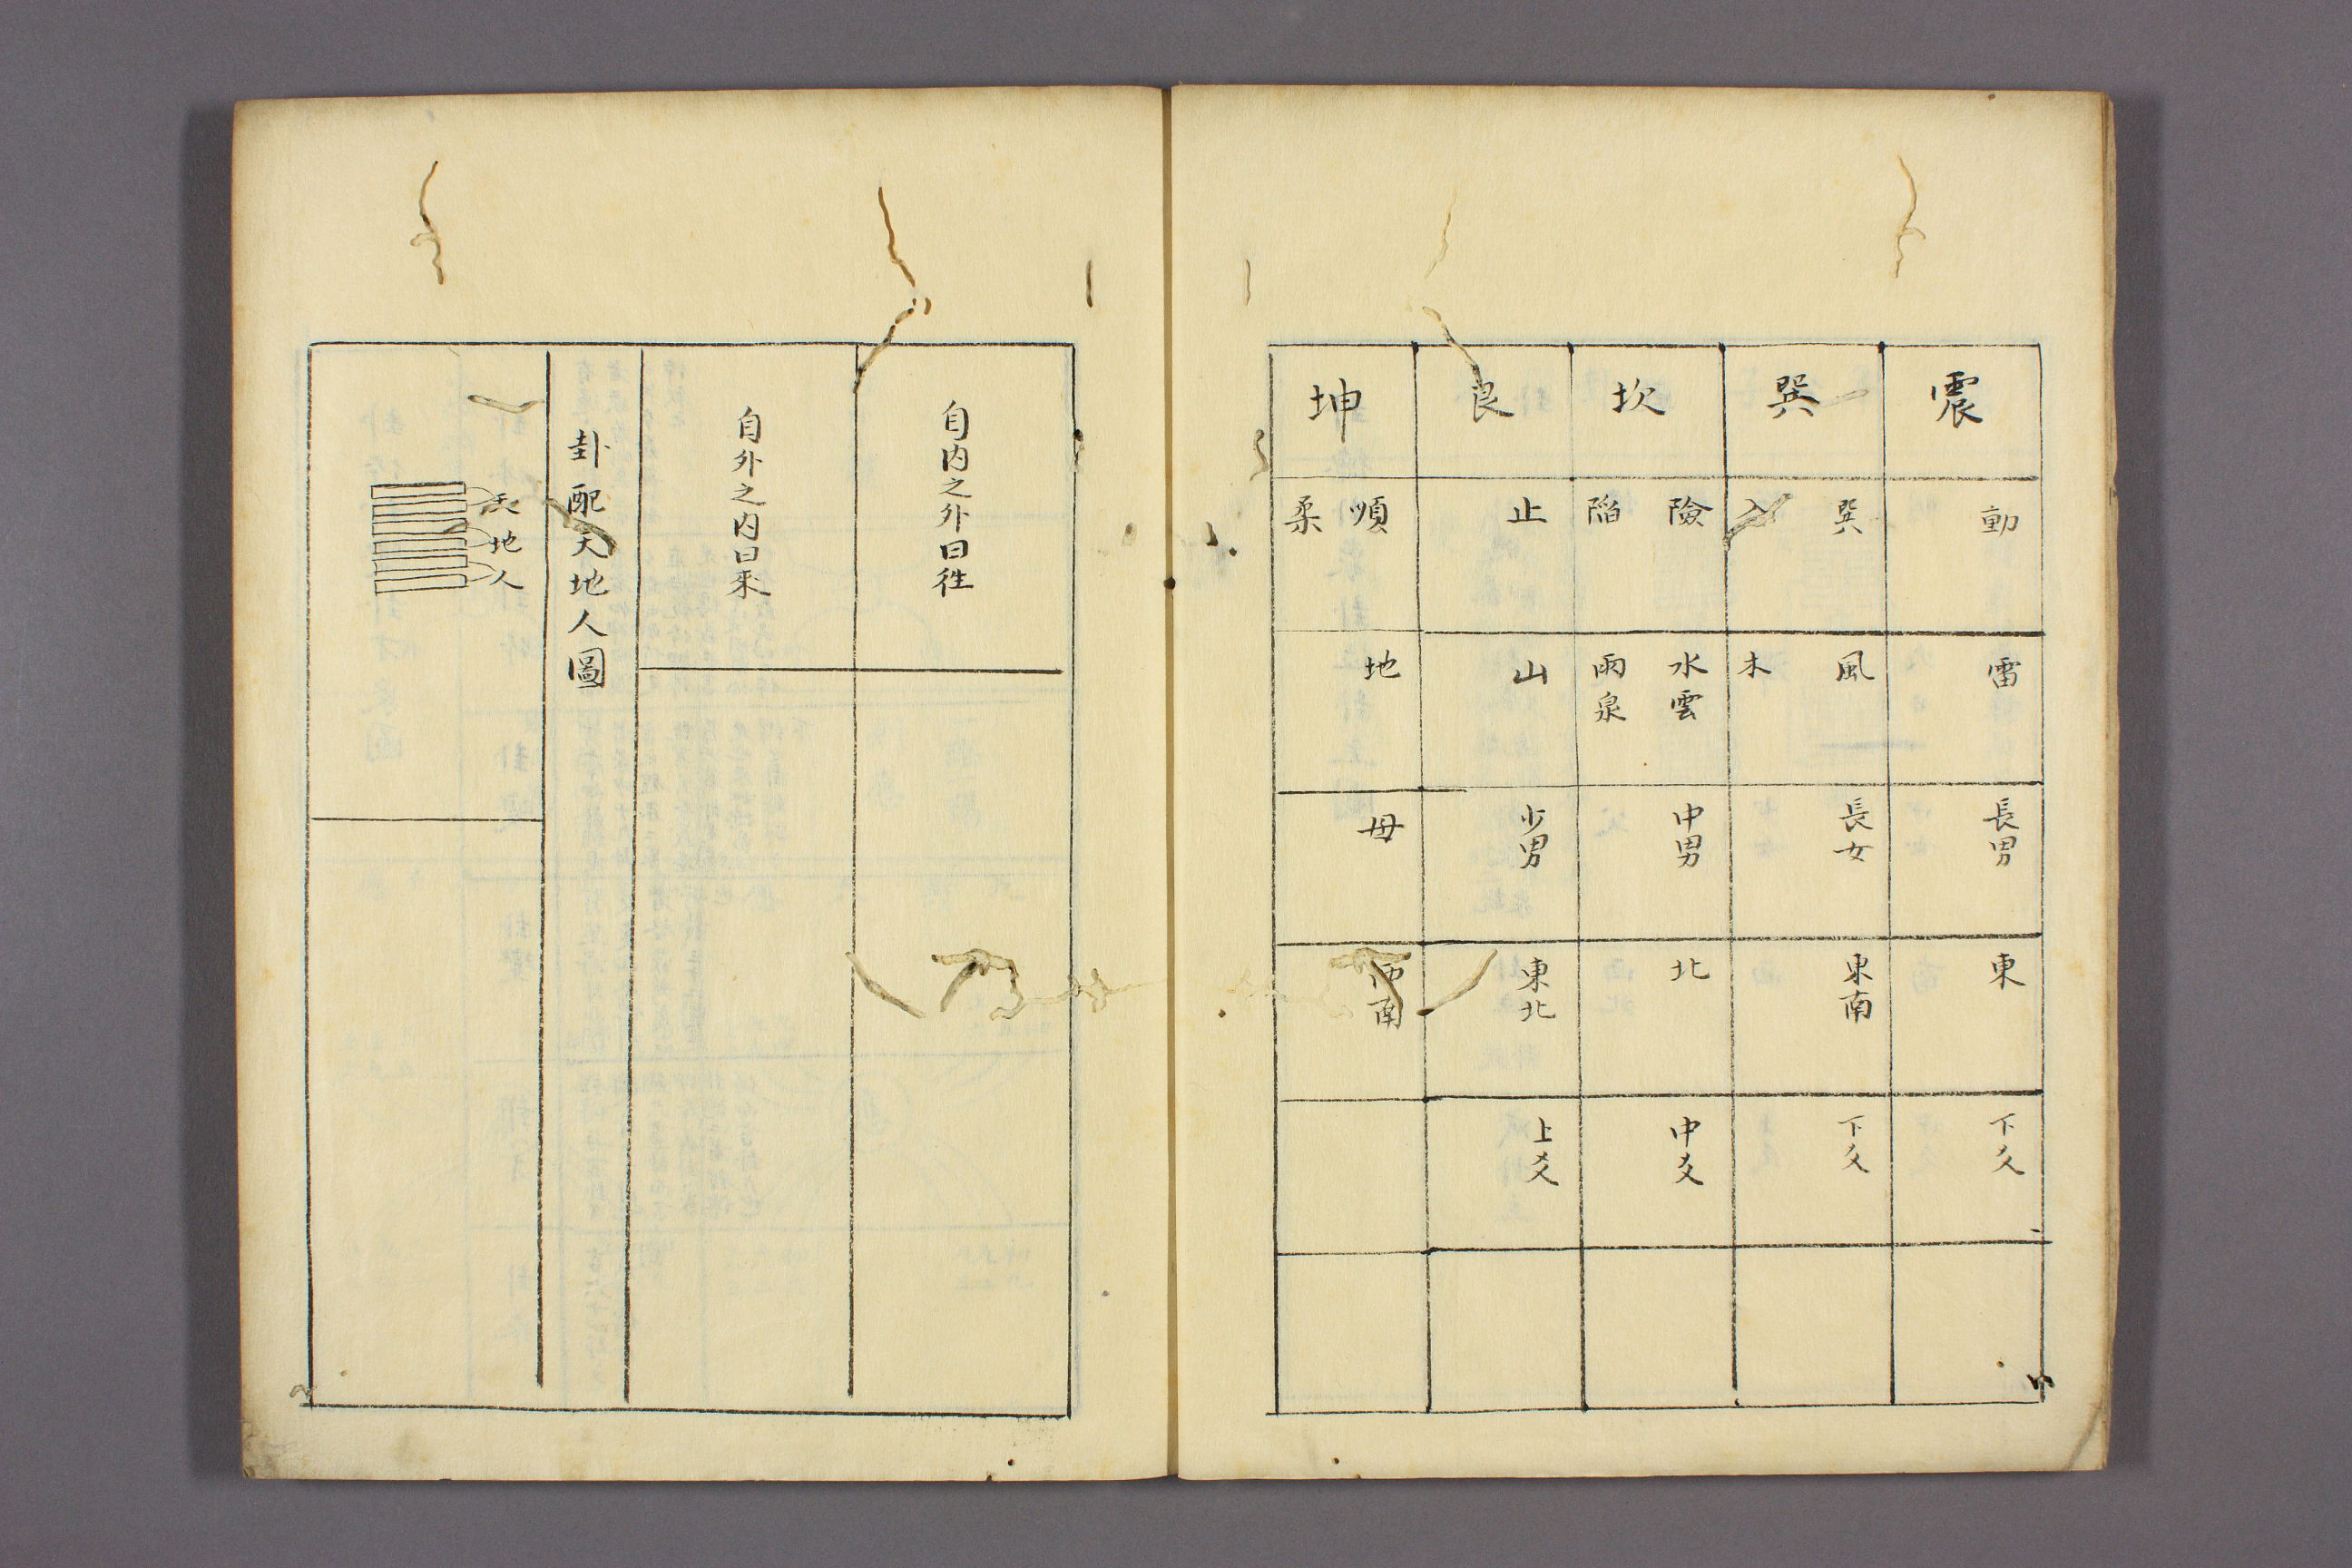 震
動
雷
長男
東
下爻
巽
巽
入
風
木
長女
東南
下爻
坎
險
陷
水雲
雨泉
中男
北
中爻
艮
止
山
少男
東北
上爻
坤
順
柔
地
母
西南
自内之外曰往
自外之内曰来
卦配天地人圖
天
地
人